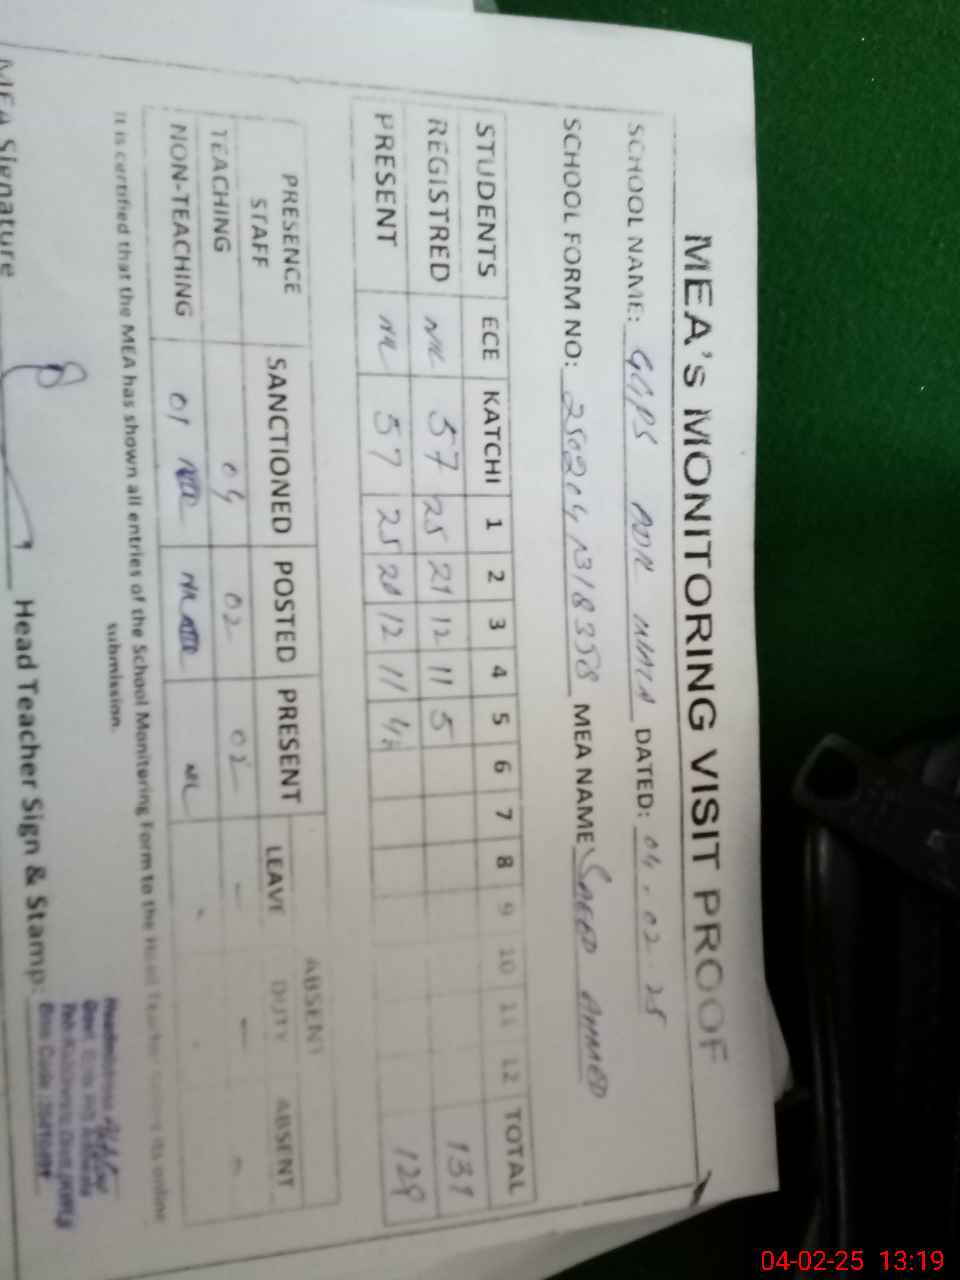 MEA's MONITORING VISIT PROOF
SCHOOL NAME: GGPS DATED: 04.02.25
SCHOOL FORM NO: MEA NAME SAEED AHMED
STUDENTS ECE KATCHI 1 2 3 4 5 6 7 8 9 10 11 12 TOTAL
REGISTRED NIL 57 25 21 12 11 5 131
PRESENT NIL 57 25 20 12 11 4 129
PRESENCE STAFF SANCTIONED POSTED PRESENT ABSENT
LEAVE DUTY ABSENT
TEACHING 04 02 02 - - -
NON-TEACHING 01 NIL NIL
It is certified that the MEA has shown all entries of the School Monitoring Form to the Head Teacher its online
submission.
MEA Signature Head Teacher Sign & Stamp:
Headmistress
04-02-25 13:19